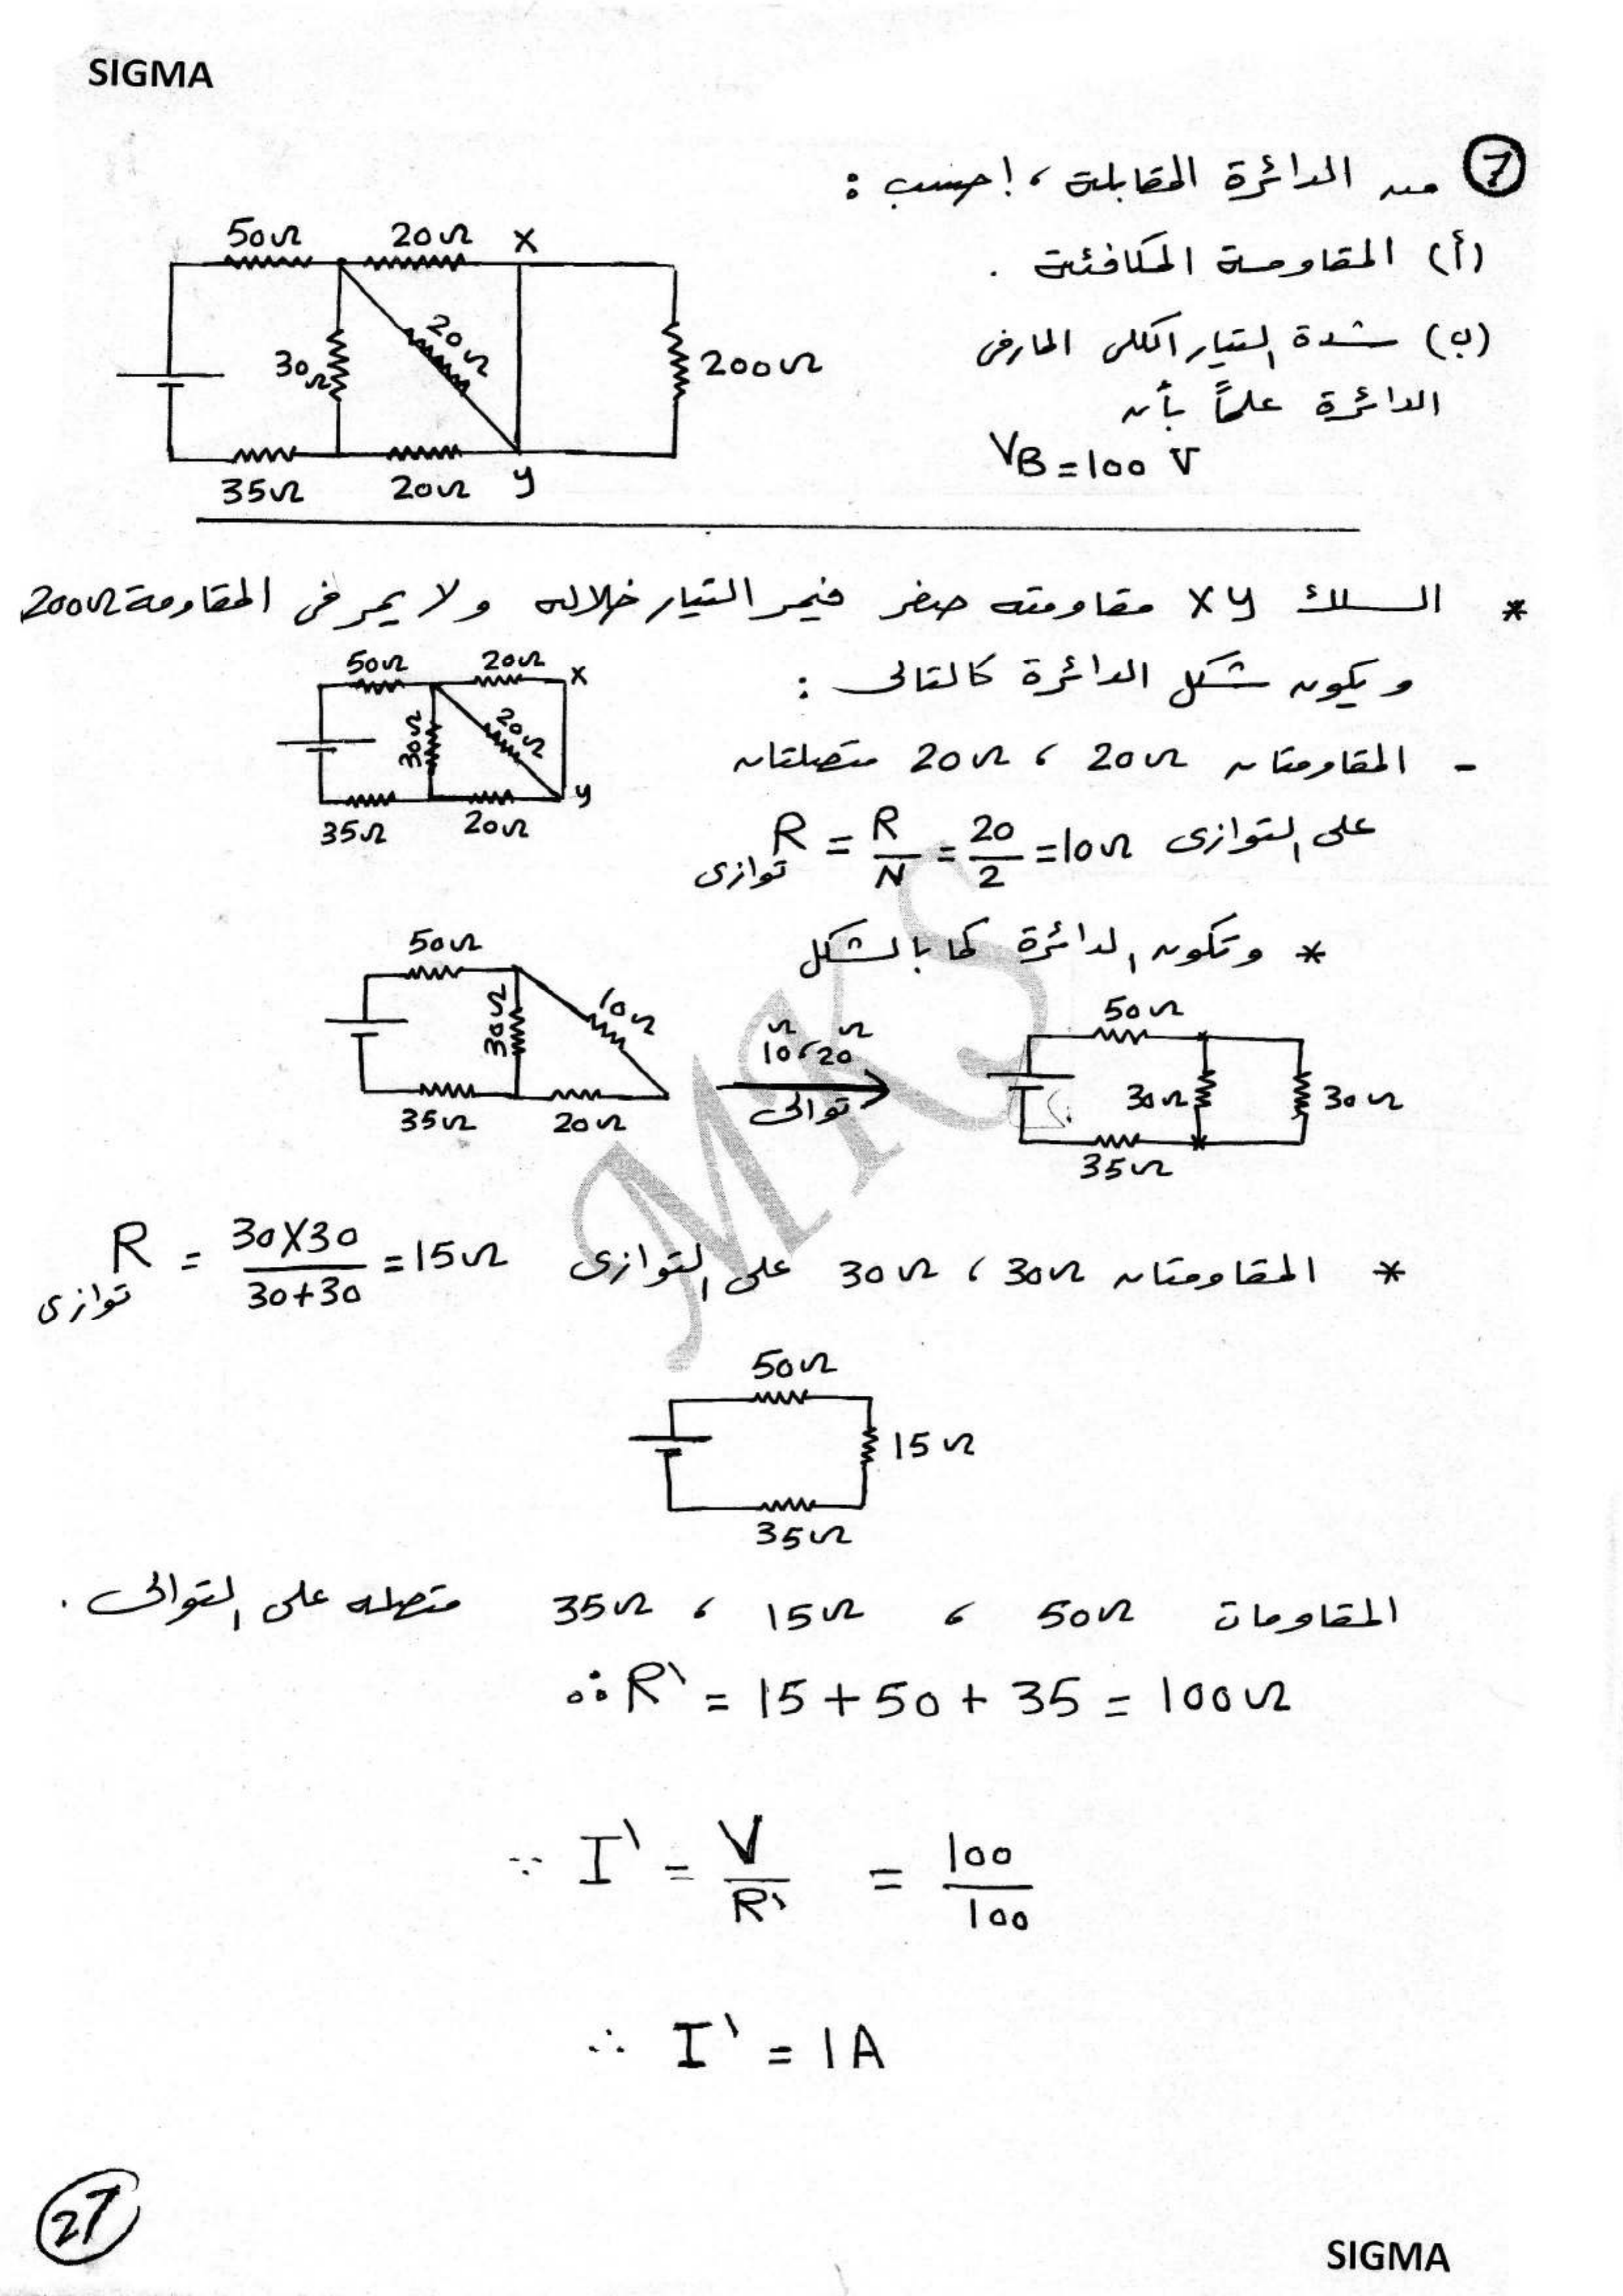 SIGMA
⑦ من الدائرة المقابلة ، احسب :
(أ) المقاومة المكافئة .
(ب) شدة التيار الكلى المار فى
الدائرة علماً بأن
V_B = 100 V
50Ω 20Ω X
30Ω 20Ω 200Ω
35Ω 20Ω y
* السلك xy مقاومته صفر فيمر التيار خلاله ولا يمر فى المقاومة 200Ω
ويكون شكل الدائرة كالتالى :
50Ω 20Ω x
30Ω 20Ω
35Ω 20Ω y
- المقاومتان 20Ω ، 20Ω متصلتان
على التوازى R توازى = R/N = 20/2 = 10Ω
* وتكون الدائرة كما بالشكل
50Ω
30Ω 10Ω
35Ω 20Ω
10Ω ، 20Ω
توالى
50Ω
30Ω 30Ω
35Ω
* المقاومتان 30Ω ، 30Ω على التوازى R توازى = 30X30/30+30 = 15Ω
50Ω
15Ω
35Ω
المقاومات 50Ω ، 15Ω ، 35Ω متصله على التوالى .
∴ R\ = 15 + 50 + 35 = 100Ω
∵ I\ = V/R\ = 100/100
∴ I\ = 1A
MKS
27
SIGMA